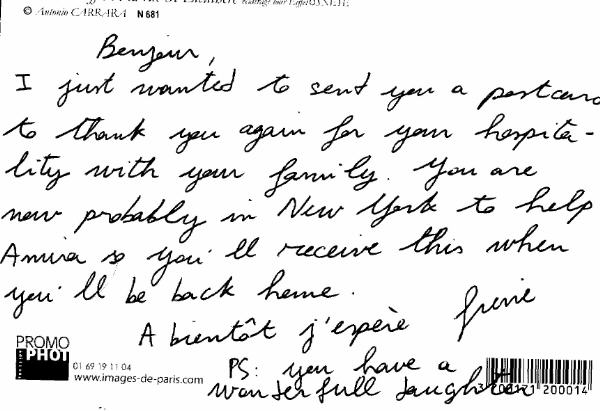 © Antonio CARRARA N 681
Bonjour,
I just wanted to send you a postcard
to thank you again for your hospita-
lity with your family. You are
now probably in New York to help
Amira so you'll receive this when
you'll be back home.
A bientôt j'espère
PS: you have a
wonderfull daughter
PROMO
PHOT
01 69 19 11 04
www.images-de-paris.com
200014